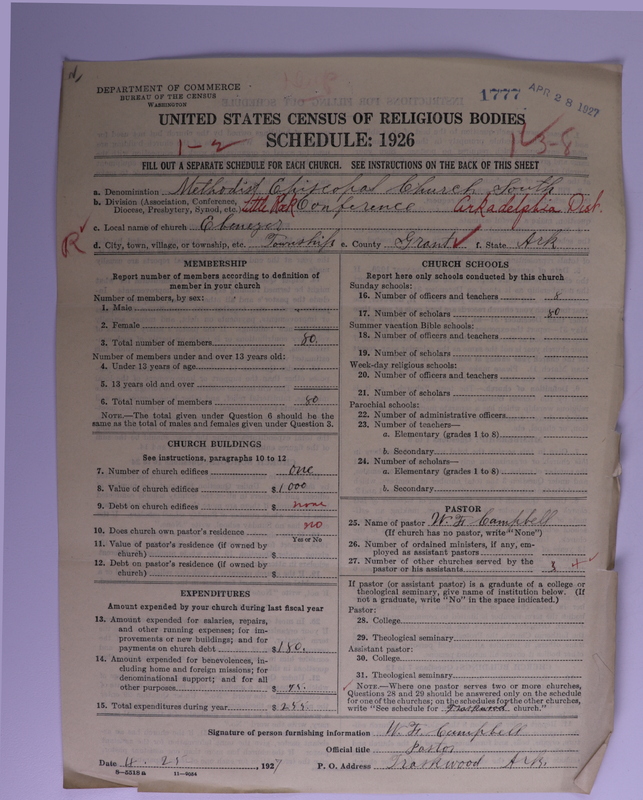 DEPARTMENT OF COMMERCE
BUREAU OF THE CENSUS
WASHINGTON
1777 APR 28 1927
UNITED STATES CENSUS OF RELIGIOUS BODIES
1-2 SCHEDULE: 1926 13-8
FILL OUT A SEPARATE SCHEDULE FOR EACH CHURCH. SEE INSTRUCTIONS ON THE BACK OF THIS SHEET
a. Denomination Methodist Episcopal Church South
b. Division (Association, Conference, Diocese, Presbytery, Synod, etc.) Little Rock Conference Arkadelphia Dist.
c. Local name of church Ebenezer
R d. City, town, village, or township, etc. Township e. County Grant f. State Ark
MEMBERSHIP
Report number of members according to definition of
member in your church
Number of members, by sex:
1. Male
2. Female
3. Total number of members 80.
Number of members under and over 13 years old:
4. Under 13 years of age
5. 13 years old and over
6. Total number of members 80
NOTE.—The total given under Question 6 should be the
same as the total of males and females given under Question 3.
CHURCH BUILDINGS
See instructions, paragraphs 10 to 12
7. Number of church edifices one
8. Value of church edifices $1000
9. Debt on church edifices $ none
10. Does church own pastor's residence no
Yes or No
11. Value of pastor's residence (if owned by
church) $
12. Debt on pastor's residence (if owned by
church) $
EXPENDITURES
Amount expended by your church during last fiscal year
13. Amount expended for salaries, repairs,
and other running expenses; for im-
provements or new buildings; and for
payments on church debt $180.
14. Amount expended for benevolences, in-
cluding home and foreign missions; for
denominational support; and for all
other purposes $75.
15. Total expenditures during year $255
CHURCH SCHOOLS
Report here only schools conducted by this church
Sunday schools:
16. Number of officers and teachers 8
17. Number of scholars 80
Summer vacation Bible schools:
18. Number of officers and teachers
19. Number of scholars
Week-day religious schools:
20. Number of officers and teachers
21. Number of scholars
Parochial schools:
22. Number of administrative officers
23. Number of teachers—
a. Elementary (grades 1 to 8)
b. Secondary
24. Number of scholars—
a. Elementary (grades 1 to 8)
b. Secondary
PASTOR
25. Name of pastor W. F. Campbell
(If church has no pastor, write "None")
26. Number of ordained ministers, if any, em-
ployed as assistant pastors
27. Number of other churches served by the
pastor or his assistants 3
If pastor (or assistant pastor) is a graduate of a college or
theological seminary, give name of institution below. (If
not a graduate, write "No" in the space indicated.)
Pastor:
28. College
29. Theological seminary
Assistant pastor:
30. College
31. Theological seminary
NOTE.—Where one pastor serves two or more churches,
Questions 28 and 29 should be answered only on the schedule
for one of the churches; on the schedules for the other churches,
write "See schedule for Traskwood church."
Signature of person furnishing information W. F. Campbell
Official title Pastor
Date 4-25, 1927 P. O. Address Traskwood Ark.
8-5518 a 11-9034